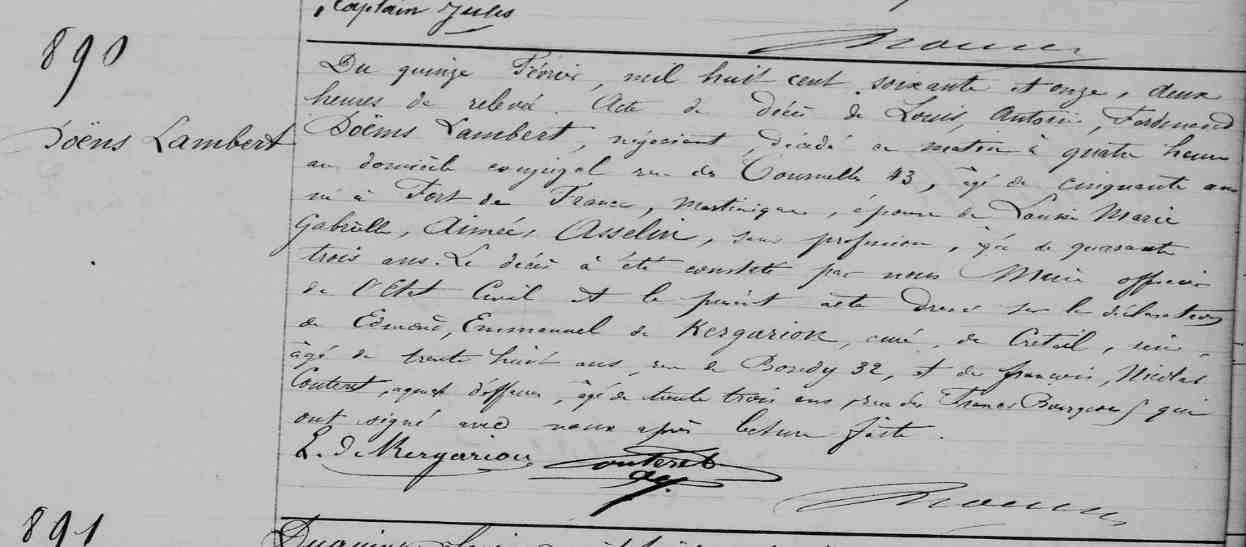 Captain Jules
890
Doëns Lambert
Du quinze Février, mil huit cent soixante et onze, deux
heures de relevée Acte de décès de Louis, Antoine, Ferdinand
Doëns Lambert, négociant, décédé ce matin à quatre heures
au domicile conjugal rue des Tournelles 43, âgé de cinquante ans
né à Fort de France, Martinique, époux de Laurie Marie
Gabrielle, Aimée, Asselin, sans profession, âgée de quarante
trois ans. Le décès a été constaté par nous Maire officier
de l'Etat Civil et le présent acte dressé sur la déclaration
de Edmond, Emmanuel de Kergariou, curé, de Creteil,
âgé de trente huit ans, rue de Bondy 32, et de françois, Nicolas
Conteret, agent d'affaires, âgé de trente trois ans, rue des Francs Bourgeois qui
ont signé avec nous après lecture faite.
E. de Kergariou Conteret
891